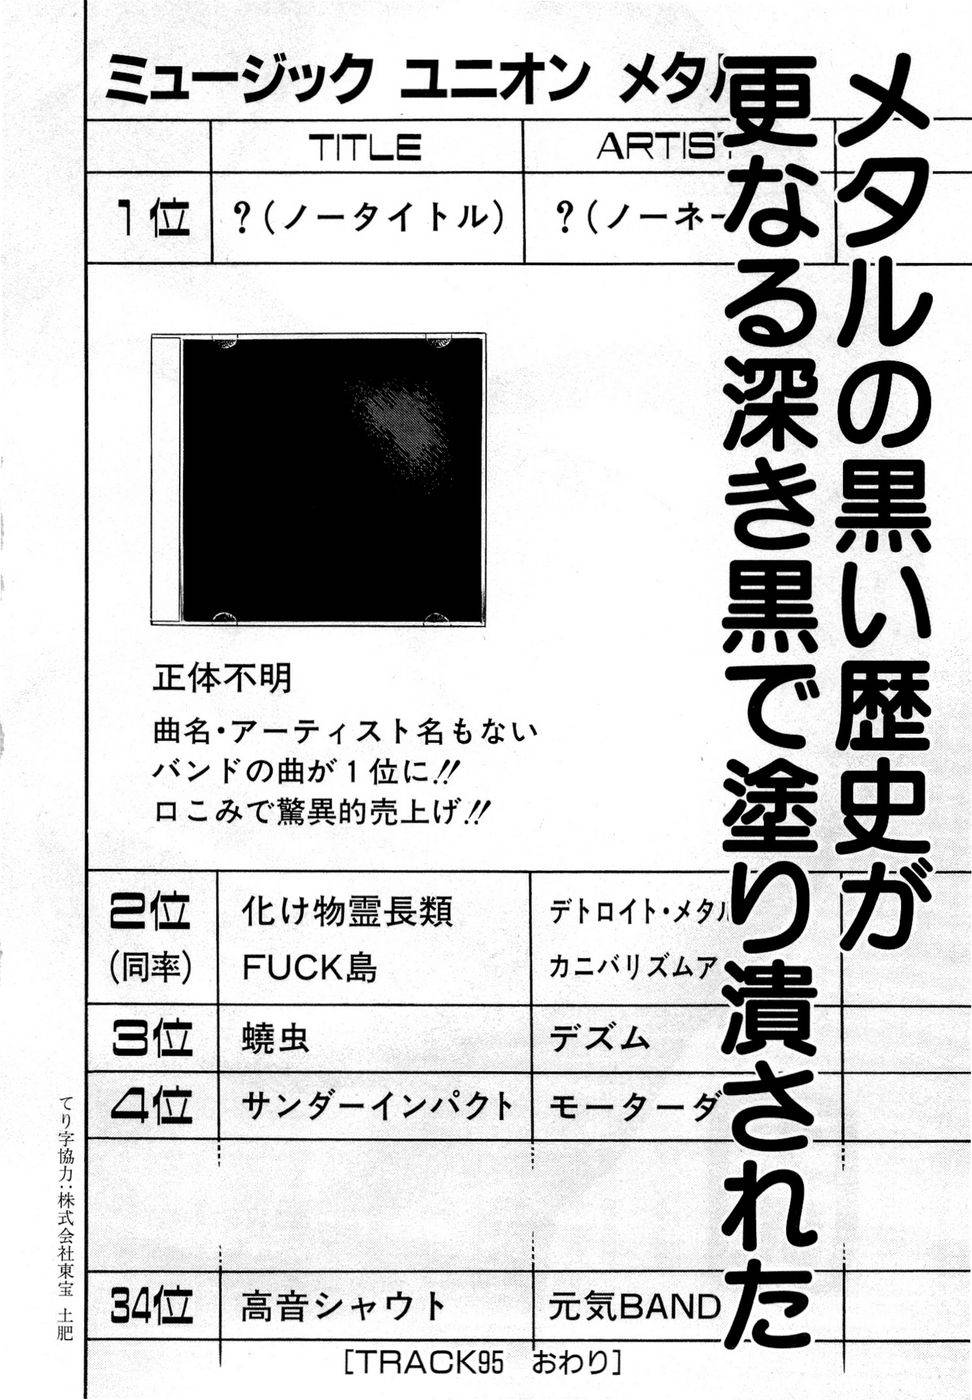 メタルの黒い歴史が
更なる深き黒で塗り潰された
ミュージック ユニオン メタル
TITLE ARTIST
1位 ?(ノータイトル) ?(ノーネー
正体不明
曲名・アーティスト名もない
バンドの曲が1位に!!
口こみで驚異的売上げ!!
2位 化け物霊長類 デトロイト・メタル
(同率) FUCK島 カニバリズムア
3位 蟯虫 デズム
4位 サンダーインパクト モーターダ
34位 高音シャウト 元気BAND
[TRACK95 おわり]
てり字協力:株式会社東宝 土肥